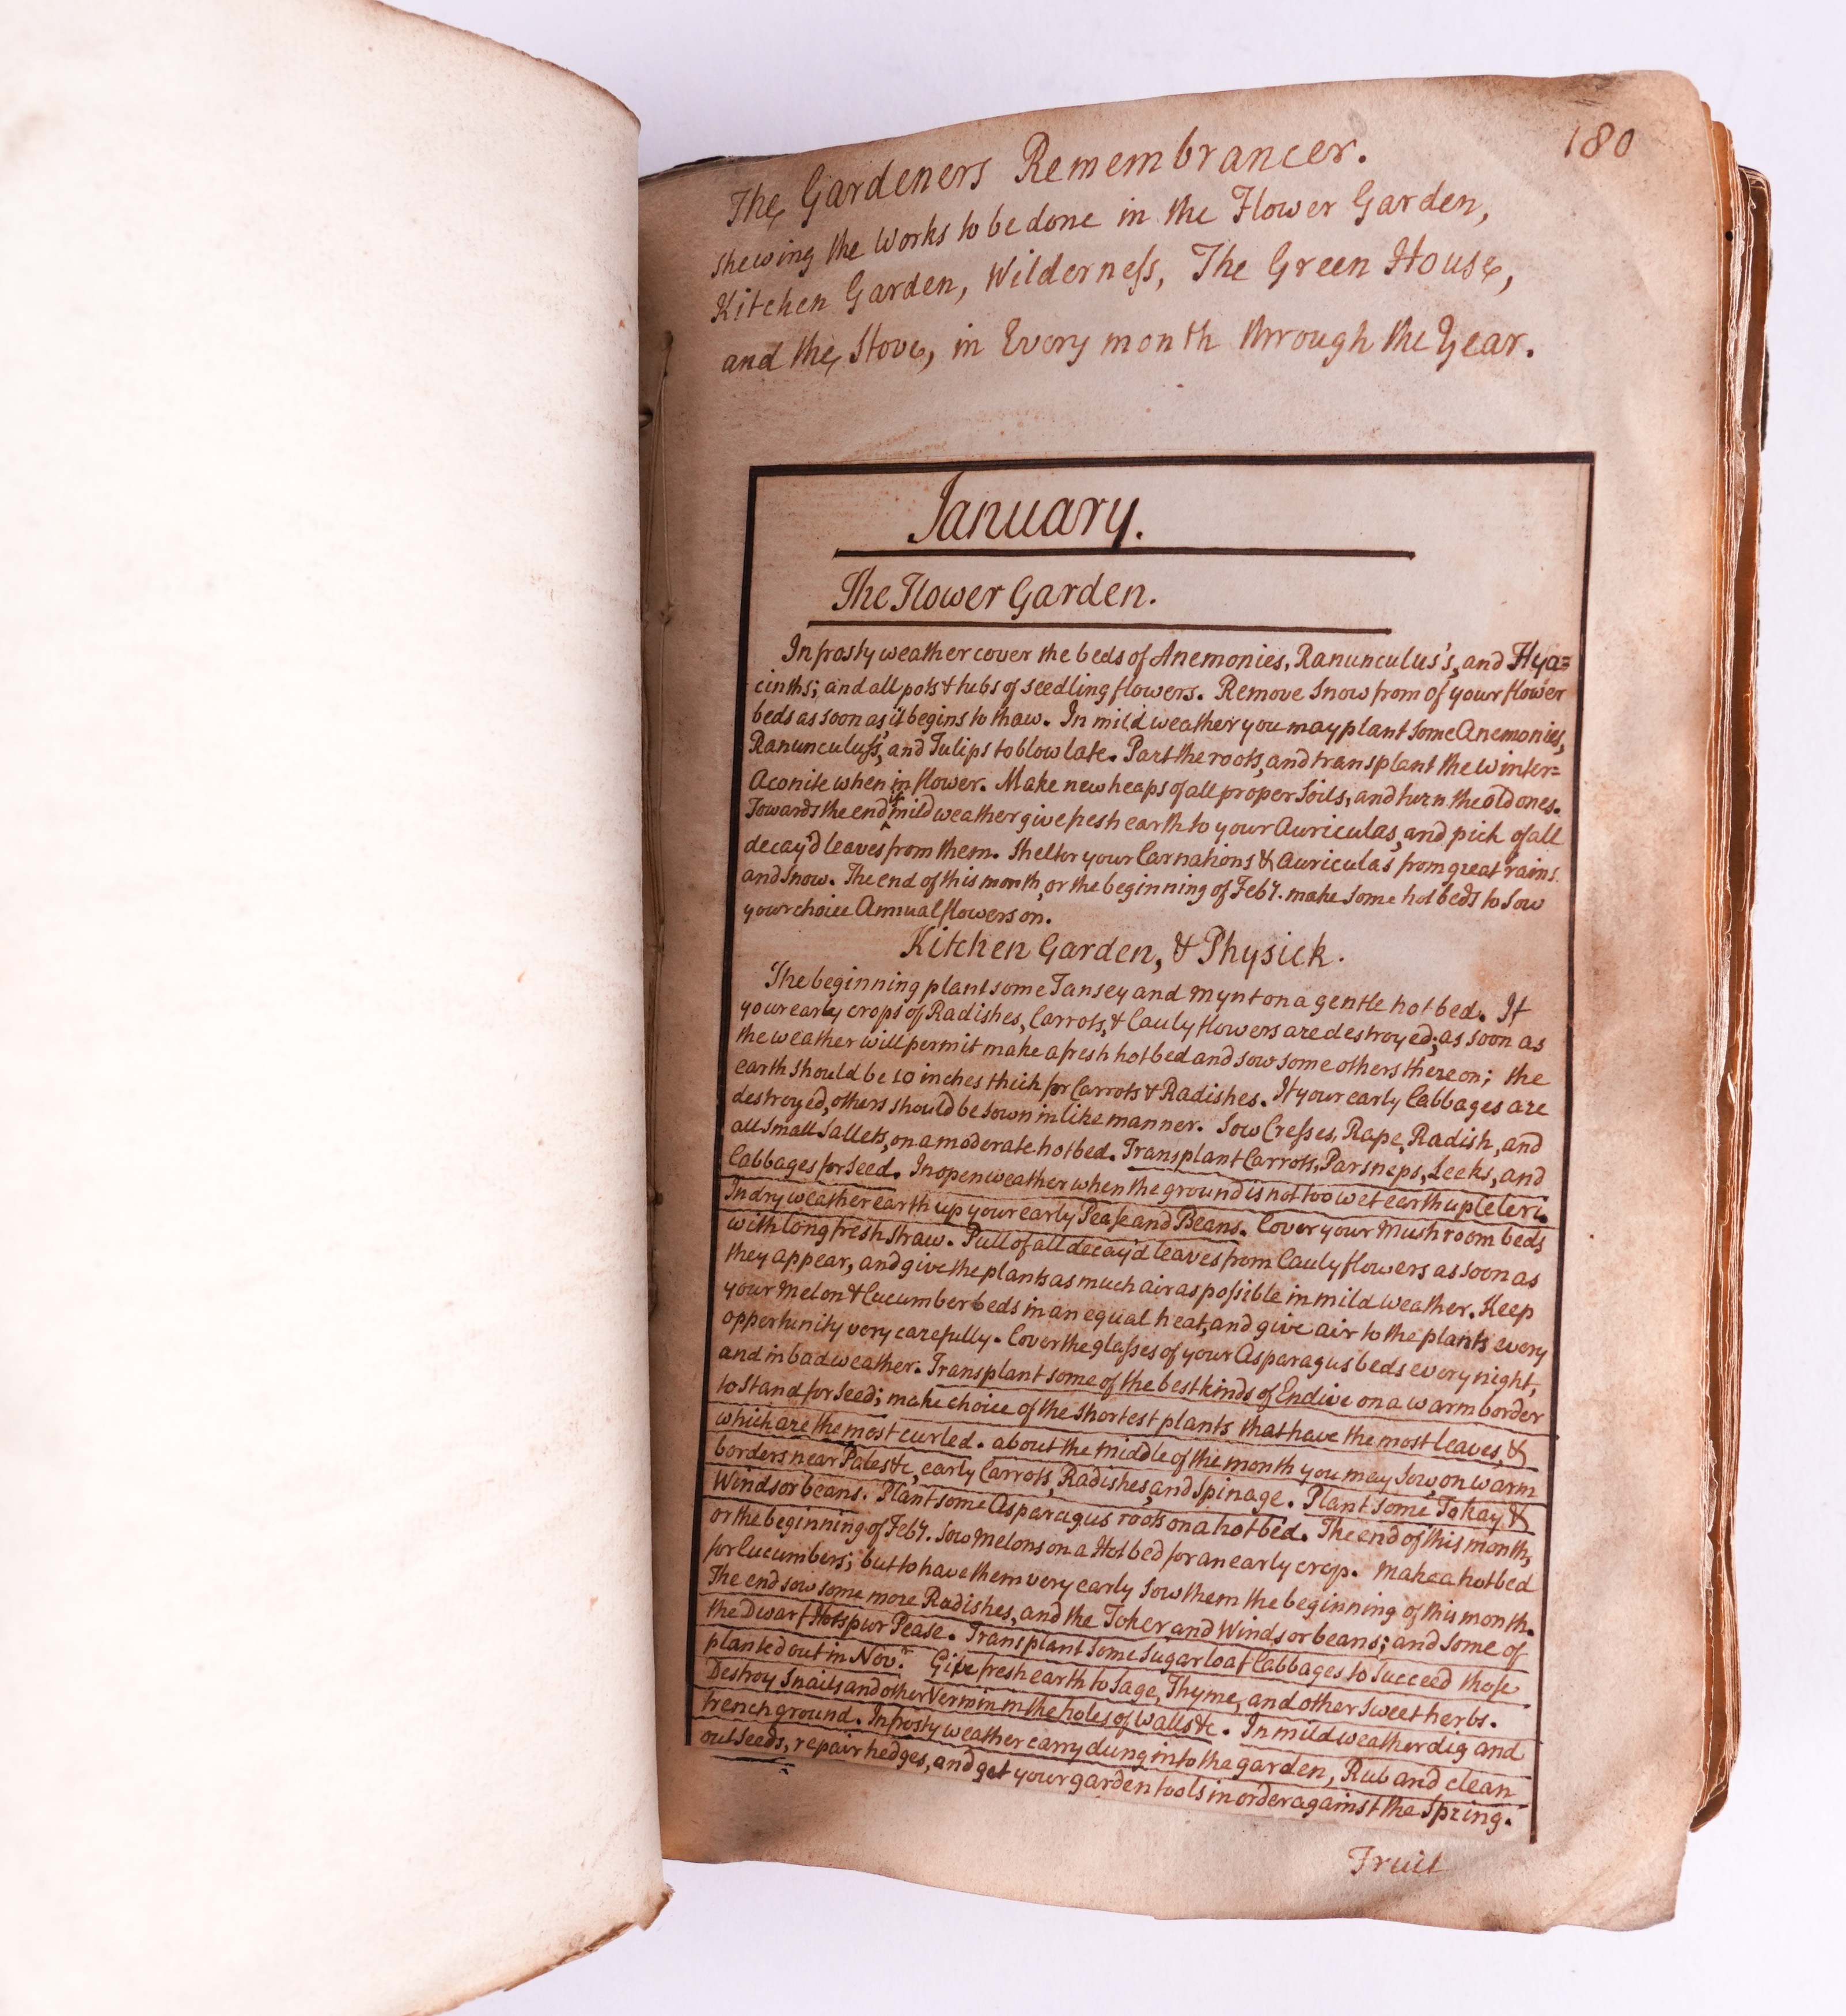 180
The Gardeners Remembrancer.
shewing the Works to be done in the Flower Garden,
Kitchen Garden, Wilderneſs, The Green House,
and the Stove, in Every month through the Year.
January.
The Flower Garden.
In frosty weather cover the beds of Anemonies, Ranunculus's, and Hya=
cinths; and all pots & tubs of seedling flowers. Remove Snow from of your flower
beds as soon as it begins to thaw. In mild weather you may plant some Anemonies,
Ranunculuſs, and Tulips to blow late. Part the roots, and transplant the Winter=
Aconite when in flower. Make new heaps of all proper Soils, and turn the old ones.
Towards the end if mild weather give fresh earth to your Auriculas, and pick of all
decay'd leaves from them. Shelter your Carnations & Auricula's from great rains
and Snow. The end of this month, or the beginning of Feby. make some hot beds to Sow
your choice Annual flowers on.
Kitchen Garden, & Physick.
The beginning plant some Tansey and Mynt on a gentle hot bed. If
your early crops of Radishes, Carrots, & Cauly flowers are destroyed; as soon as
the weather will permit make a fresh hot bed and sow some others thereon; the
earth should be 10 inches thick for Carrots & Radishes. If your early Cabbages are
destroyed, others should be sown in like manner. Sow Creſses, Rape, Radish, and
all Small Sallets, on a moderate hot bed. Transplant Carrots, Parsneps, Leeks, and
Cabbages for Seed. In open weather when the ground is not too wet earth up Celeri.
In dry weather earth up your early Peaſe and Beans. Cover your Mushroom beds
with long fresh Straw. Pull of all decay'd leaves from Cauly flowers as soon as
they appear, and give the plants as much air as poſsible in mild weather. Keep
your Melon & Cucumber beds in an equal heat, and give air to the plants every
oppertunity very carefully. Cover the glaſses of your Asparagus beds every night,
and in bad weather. Transplant some of the best kinds of Endive on a warm border
to Stand for Seed; make choice of the Shortest plants that have the most leaves, &
which are the most curled. about the middle of the month you may Sow, on warm
borders near Pales &c, early Carrots, Radishes, and Spinage. Plant some Tokay &
Windsor beans. Plant some Asparagus roots on a hot bed. The end of this month,
or the beginning of Feby. Sow Melons on a Hot bed for an early crop. Make a hot bed
for Cucumbers; but to have them very early Sow them the beginning of this month.
The end sow some more Radishes, and the Toker and Windsor beans; and Some of
the Dwarf Hotspur Pease. Transplant Some Sugar loaf Cabbages to Succeed thoſe
planted out in Novr. Give fresh earth to Sage, Thyme, and other Sweet herbs.
Destroy Snails and other Vermin in the holes of walls &c. In mild weather dig and
trench ground. In frosty weather carry dung into the garden, Rub and clean
out Seeds, repair hedges, and get your garden tools in order against the Spring.
Fruit